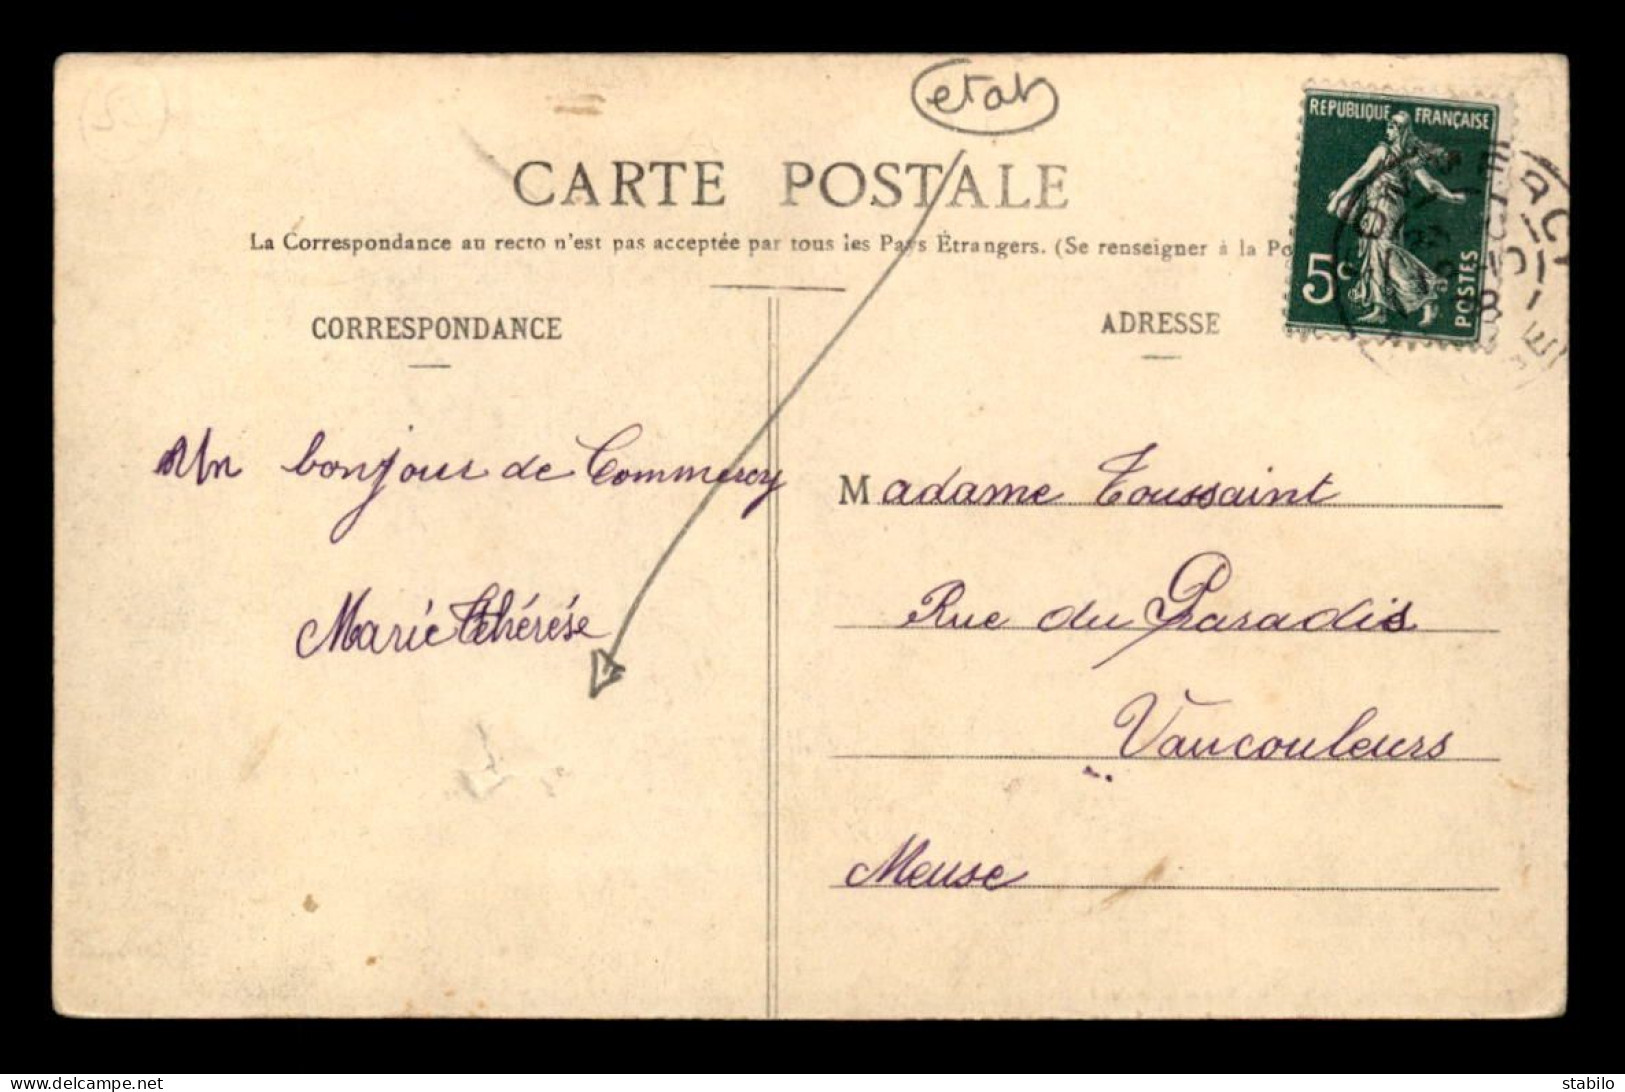 etat
CARTE POSTALE
La Correspondance au recto n'est pas acceptée par tous les Pays Étrangers. (Se renseigner à la Po
REPUBLIQUE FRANÇAISE
5c
POSTES
CORRESPONDANCE
ADRESSE
Un bonjour de Commercy
Marie Thérèse
Madame Toussaint
Rue du Paradis
Vaucouleurs
Meuse
stabilo